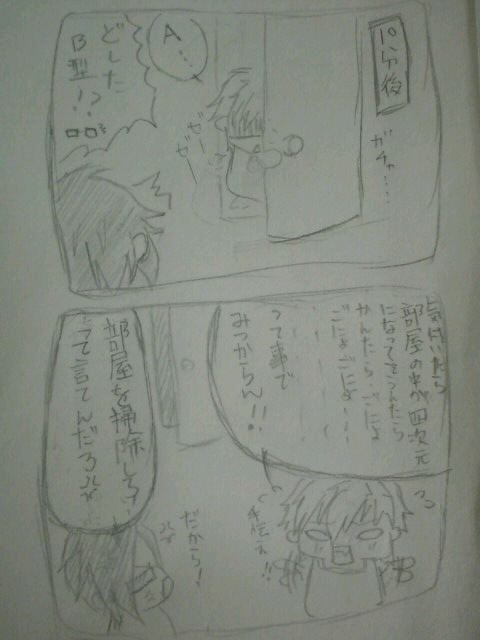 10分後
ガチャ…
A…
ゼー
ゼー
どした
B型!?
気付いたら
部屋の中が四次元
になってたうんたら
かんたら・ごにょ
ごにょごにょ…
って事で
みつからん!!
手伝え!!
B
部屋を掃除しろ
って言てんだろ
だから!